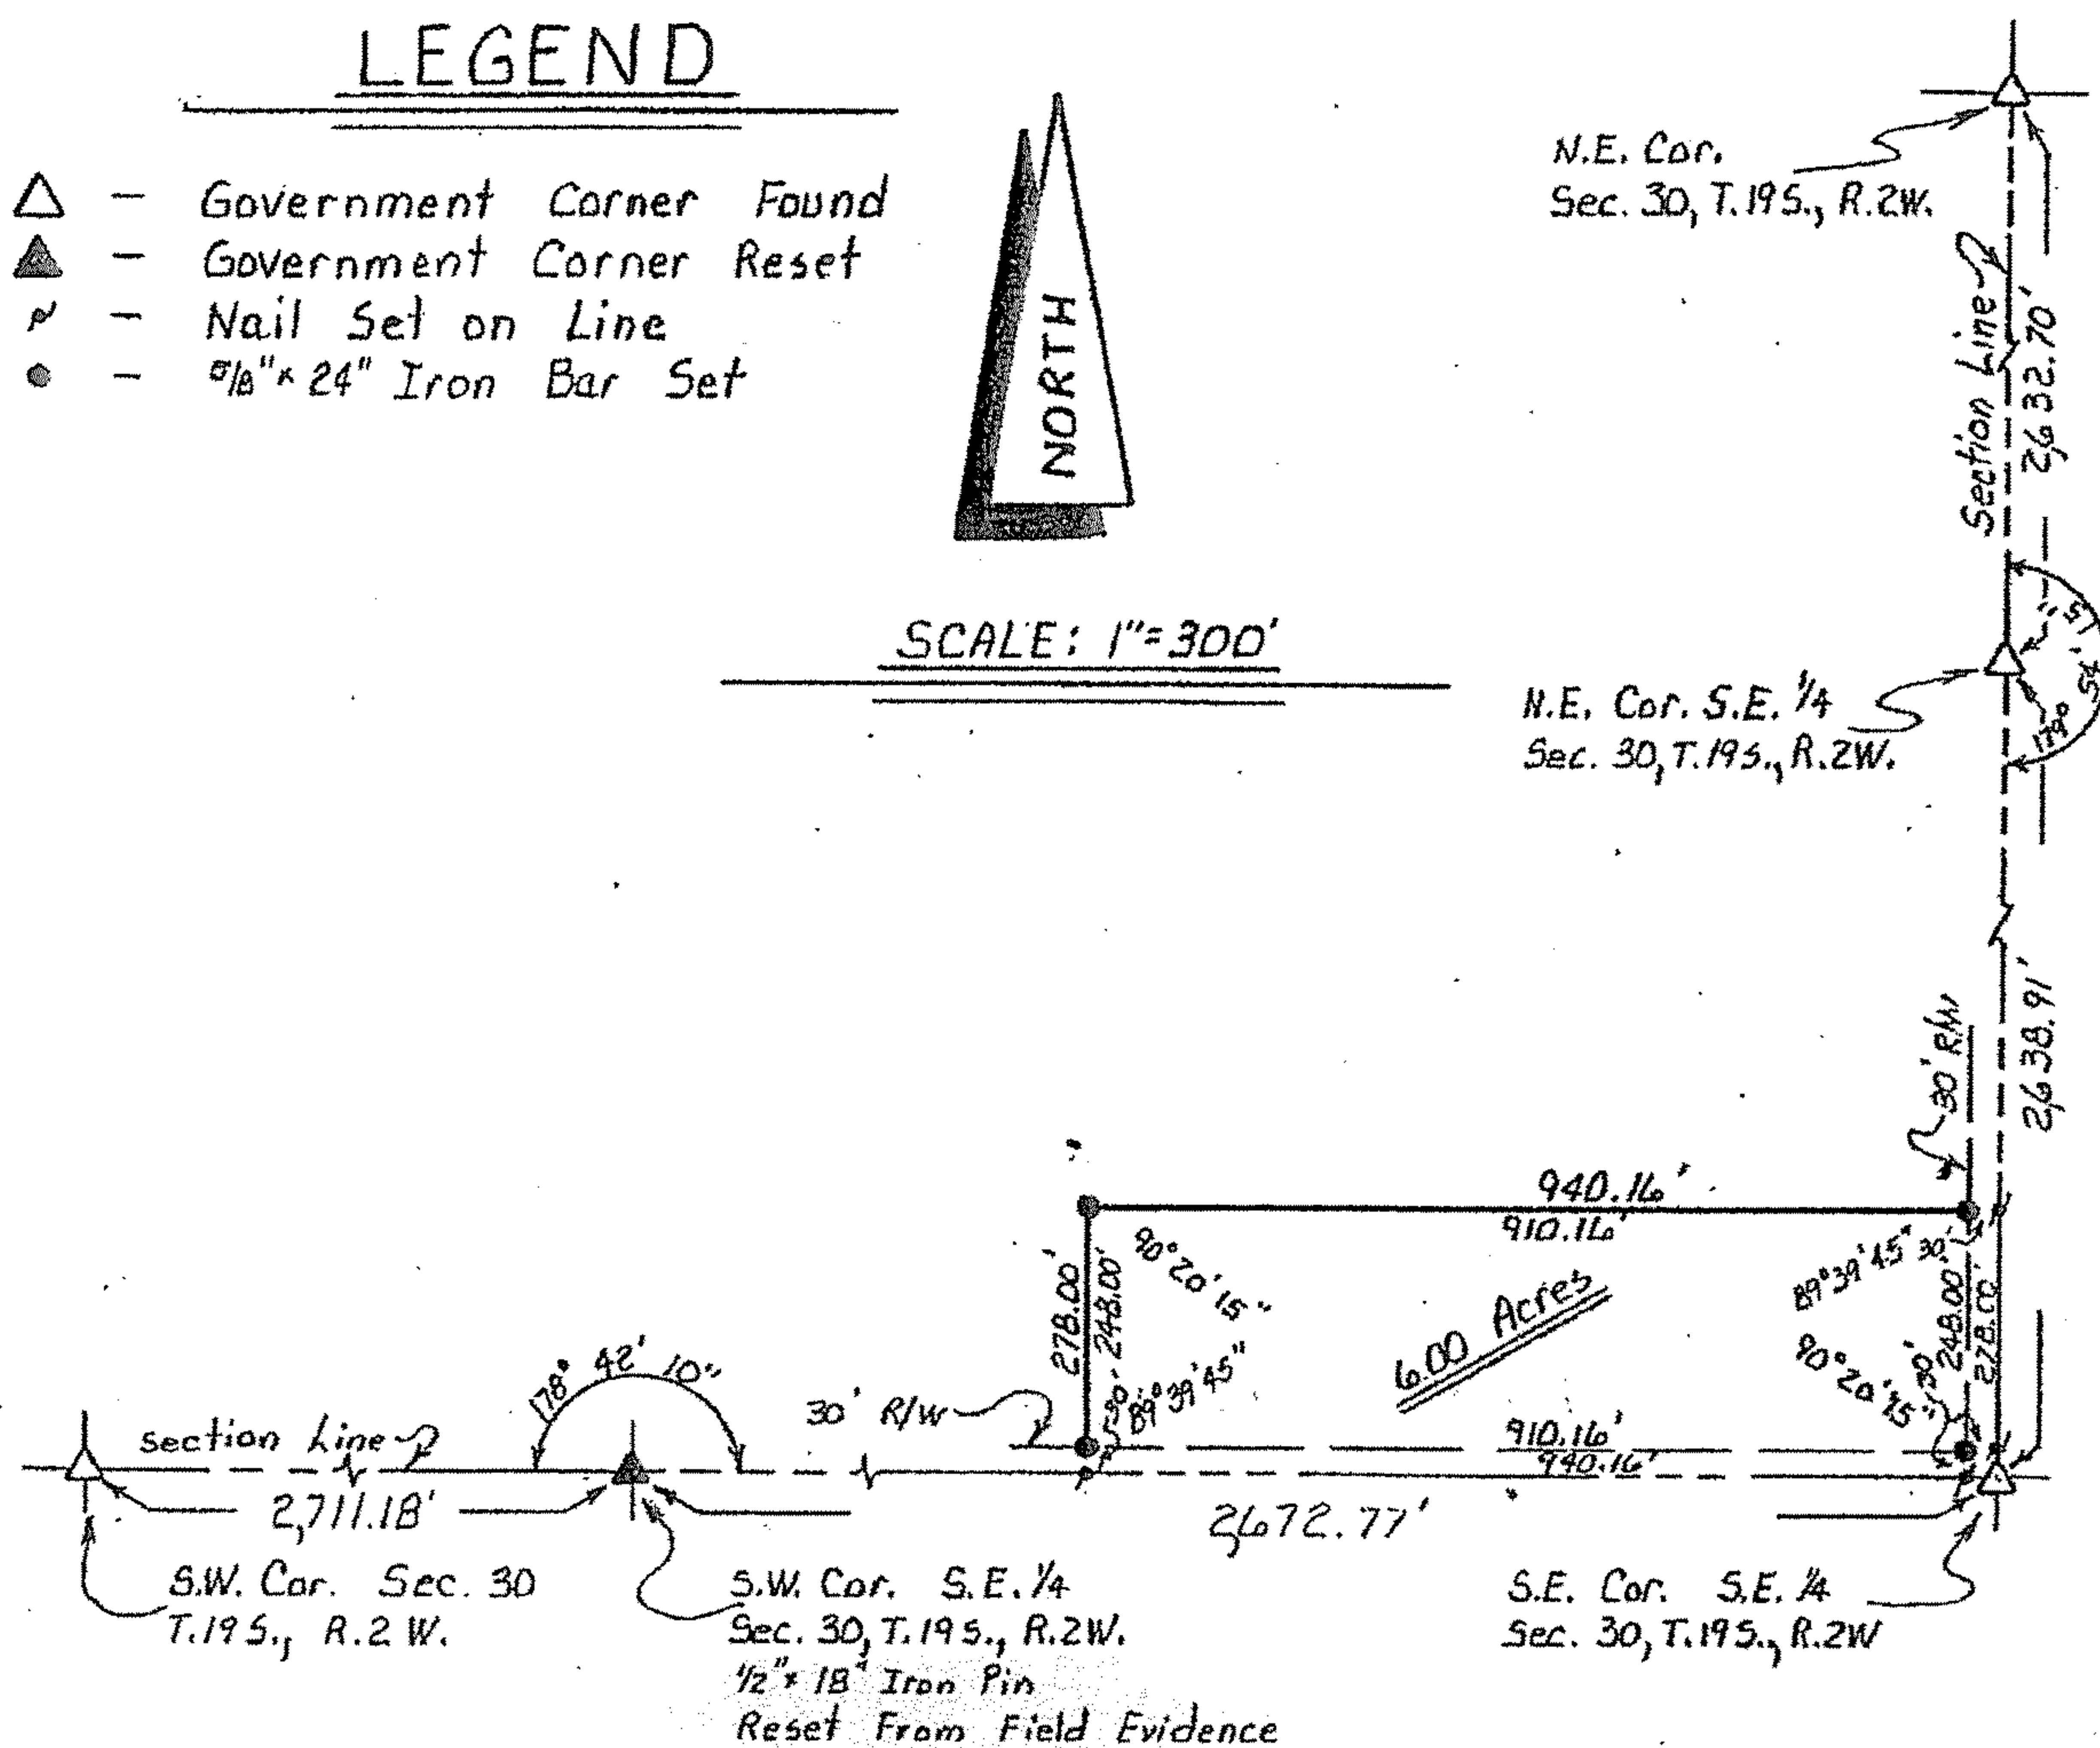 LEGEND
△ — Government Corner Found
▲ — Government Corner Reset
— Nail Set on Line
● — 5/8" x 24" Iron Bar Set
NORTH
SCALE: 1"=300'
N.E. Cor.
Sec. 30, T.19S., R.2W.
Section Line
2,632.70'
N.E. Cor. S.E. 1/4
Sec. 30, T.19S., R.2W.
179° 54' 15"
2,638.91'
30' R/W
940.16'
910.16'
278.00'
248.00'
90° 20' 15"
89° 39' 45"
30'
6.00 Acres
89° 39' 45"
30'
248.00'
278.00'
90° 20' 15"
30'
910.16'
940.16'
30' R/W
178° 42' 10"
section Line
2,711.18'
2,672.77'
S.W. Cor. Sec. 30
T.19S., R.2W.
S.W. Cor. S.E. 1/4
Sec. 30, T.19S., R.2W.
1/2" x 18" Iron Pin
Reset From Field Evidence
S.E. Cor. S.E. 1/4
Sec. 30, T.19S., R.2W